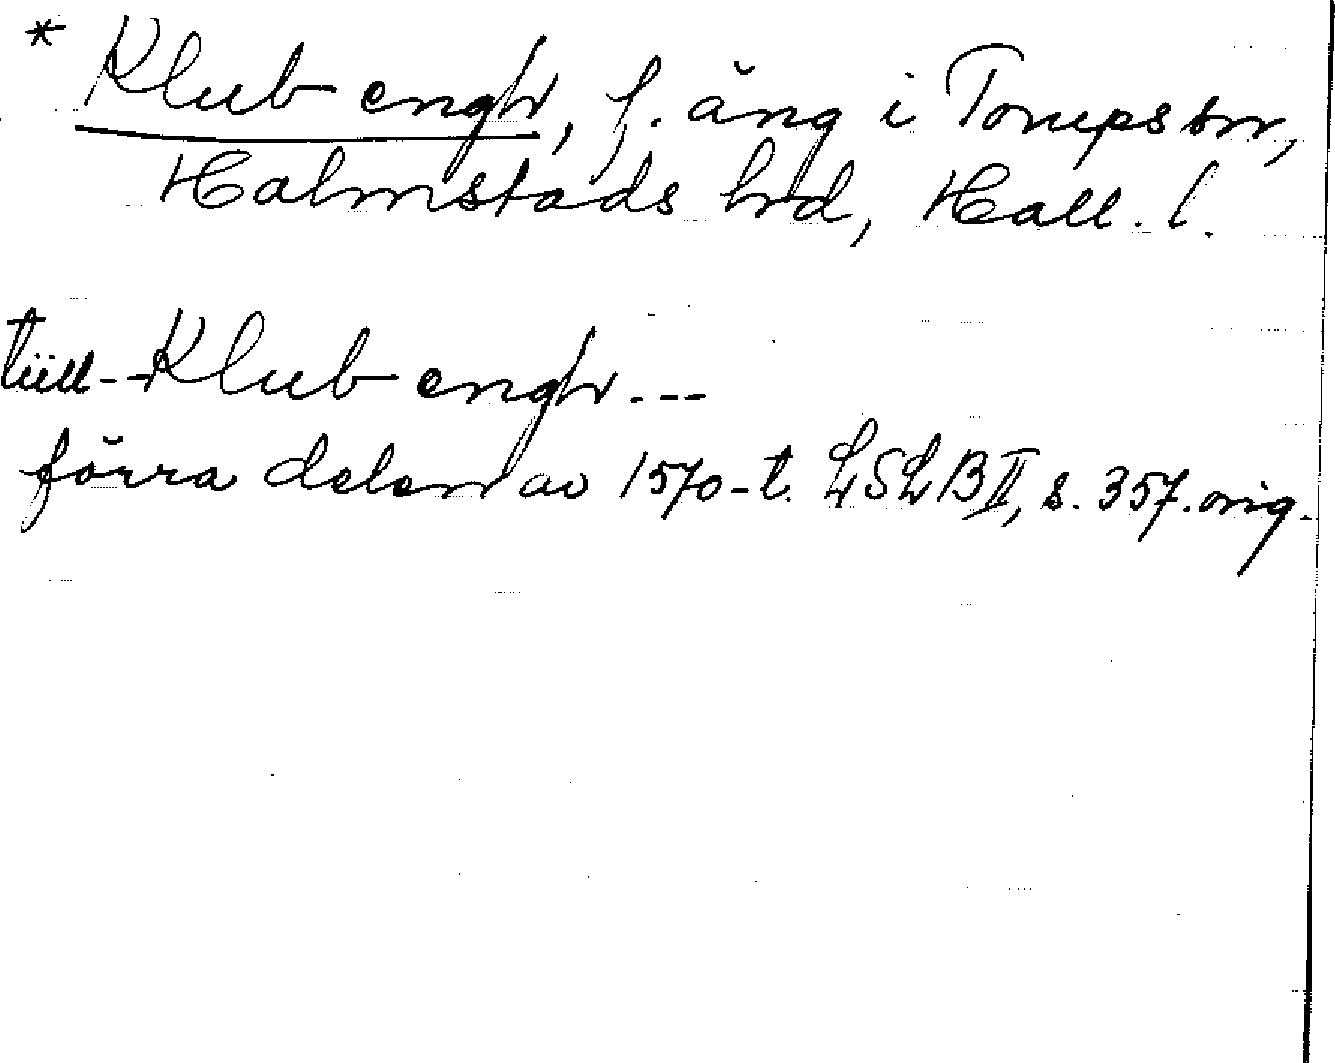 * Klub engh, f. äng i Torups sn,
Halmstads hrd, Hall. l.
tiill -- Klub engh ---
förra delen av 1570-t. LSLB II, s. 357. orig.